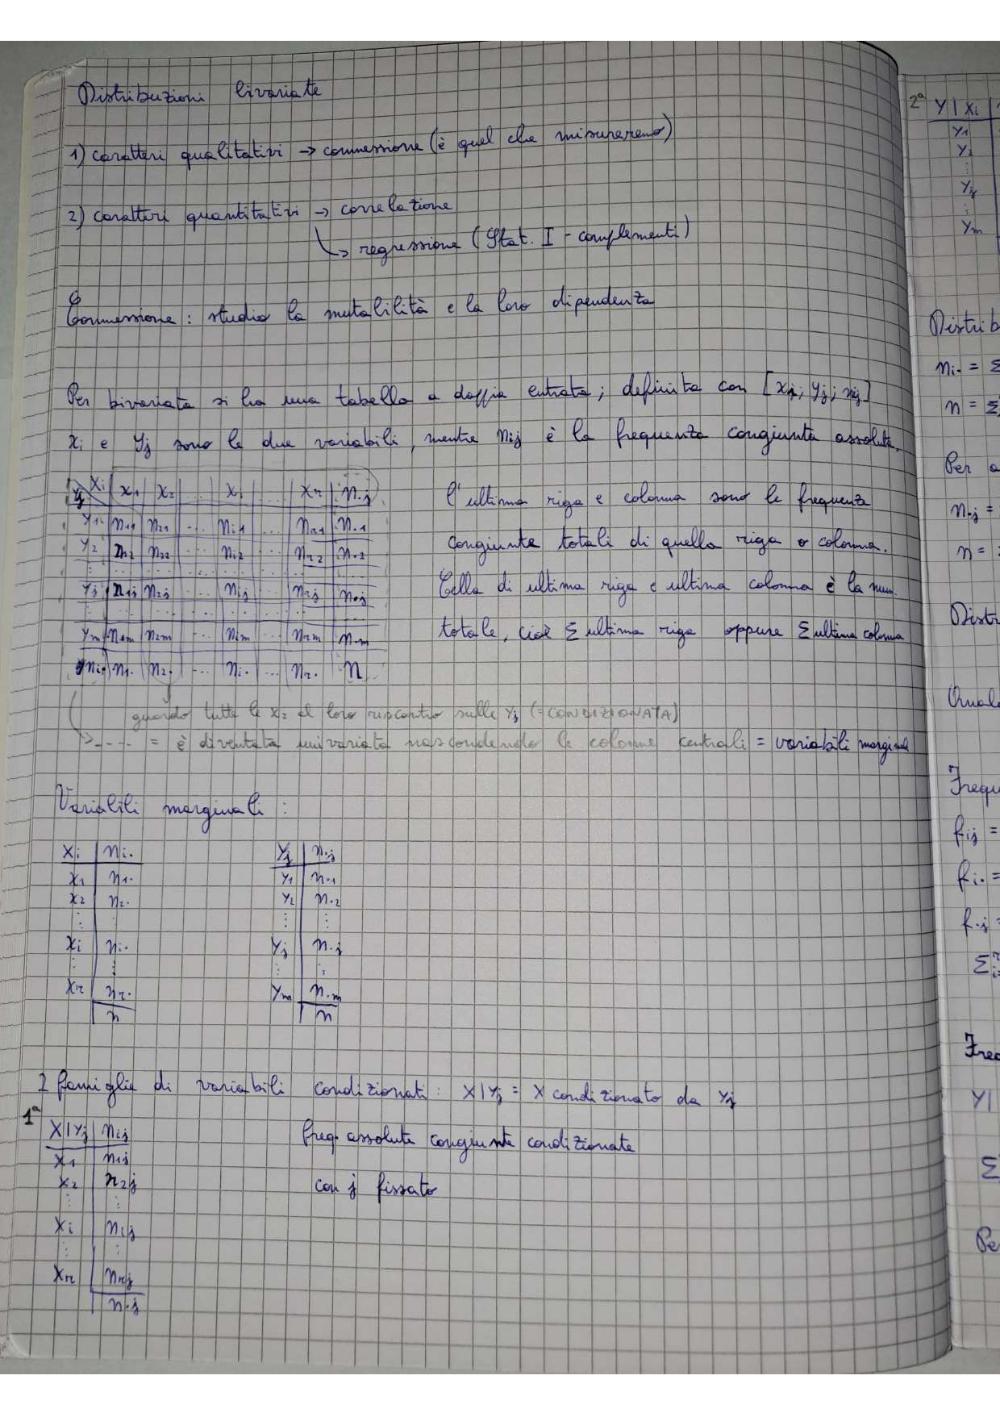 Distribuzioni bivariate
1) caratteri qualitativi → connessione (è quel che misureremo)
2) caratteri quantitativi → correlazione
↳ regressione (Stat. I - complementi)
Connessione: studio la mutabilità e la loro dipendenza
Per bivariata si ha una tabella a doppia entrata; definita con [xi; yj; nij]
xi e yj sono le due variabili, mentre nij è la frequenza congiunta assoluta.
yj xi | x1 | x2 | ... | xi | ... | xr | n.j
y1 | n11 | n21 | ... | ni1 | ... | nr1 | n.1
y2 | n12 | n22 | ... | ni2 | ... | nr2 | n.2
yj | n1j | n2j | ... | nij | ... | nrj | n.j
ym | n1m | n2m | ... | nim | ... | nrm | n.m
ni. | n1. | n2. | ... | ni. | ... | nr. | n
l'ultima riga e colonna sono le frequenze
congiunte totali di quella riga o colonna.
Cella di ultima riga e ultima colonna è la num.
totale, cioè Σ ultima riga oppure Σ ultima colonna
guardo tutte le x2 al loro riscontro sulle yj (=CONDIZIONATA)
↳ ---- = è diventata univariata nascondendo le colonne centrali = variabili marginali
Variabili marginali:
Xi | ni.
x1 | n1.
x2 | n2.
⋮ ⋮
xi | ni.
⋮ ⋮
xr | nr.
n
Yj | n.j
y1 | n.1
y2 | n.2
⋮ ⋮
yj | n.j
⋮ ⋮
ym | n.m
n
2 famiglie di variabili condizionati: X|yj = X condizionato da yj
1ª
X|yj | nij
x1 | n1j
x2 | n2j
⋮ ⋮
xi | nij
⋮ ⋮
xr | nrj
n.j
freq. assolute congiunte condizionate
con j fissato
2ª Y|Xi
y1
y2
⋮
yj
⋮
ym
Distrib
ni. = Σ
n = Σ
Per
n.j =
n =
Distri
Frequ
fij =
fi. =
f.j =
Freq
Y|
Σ
Pe